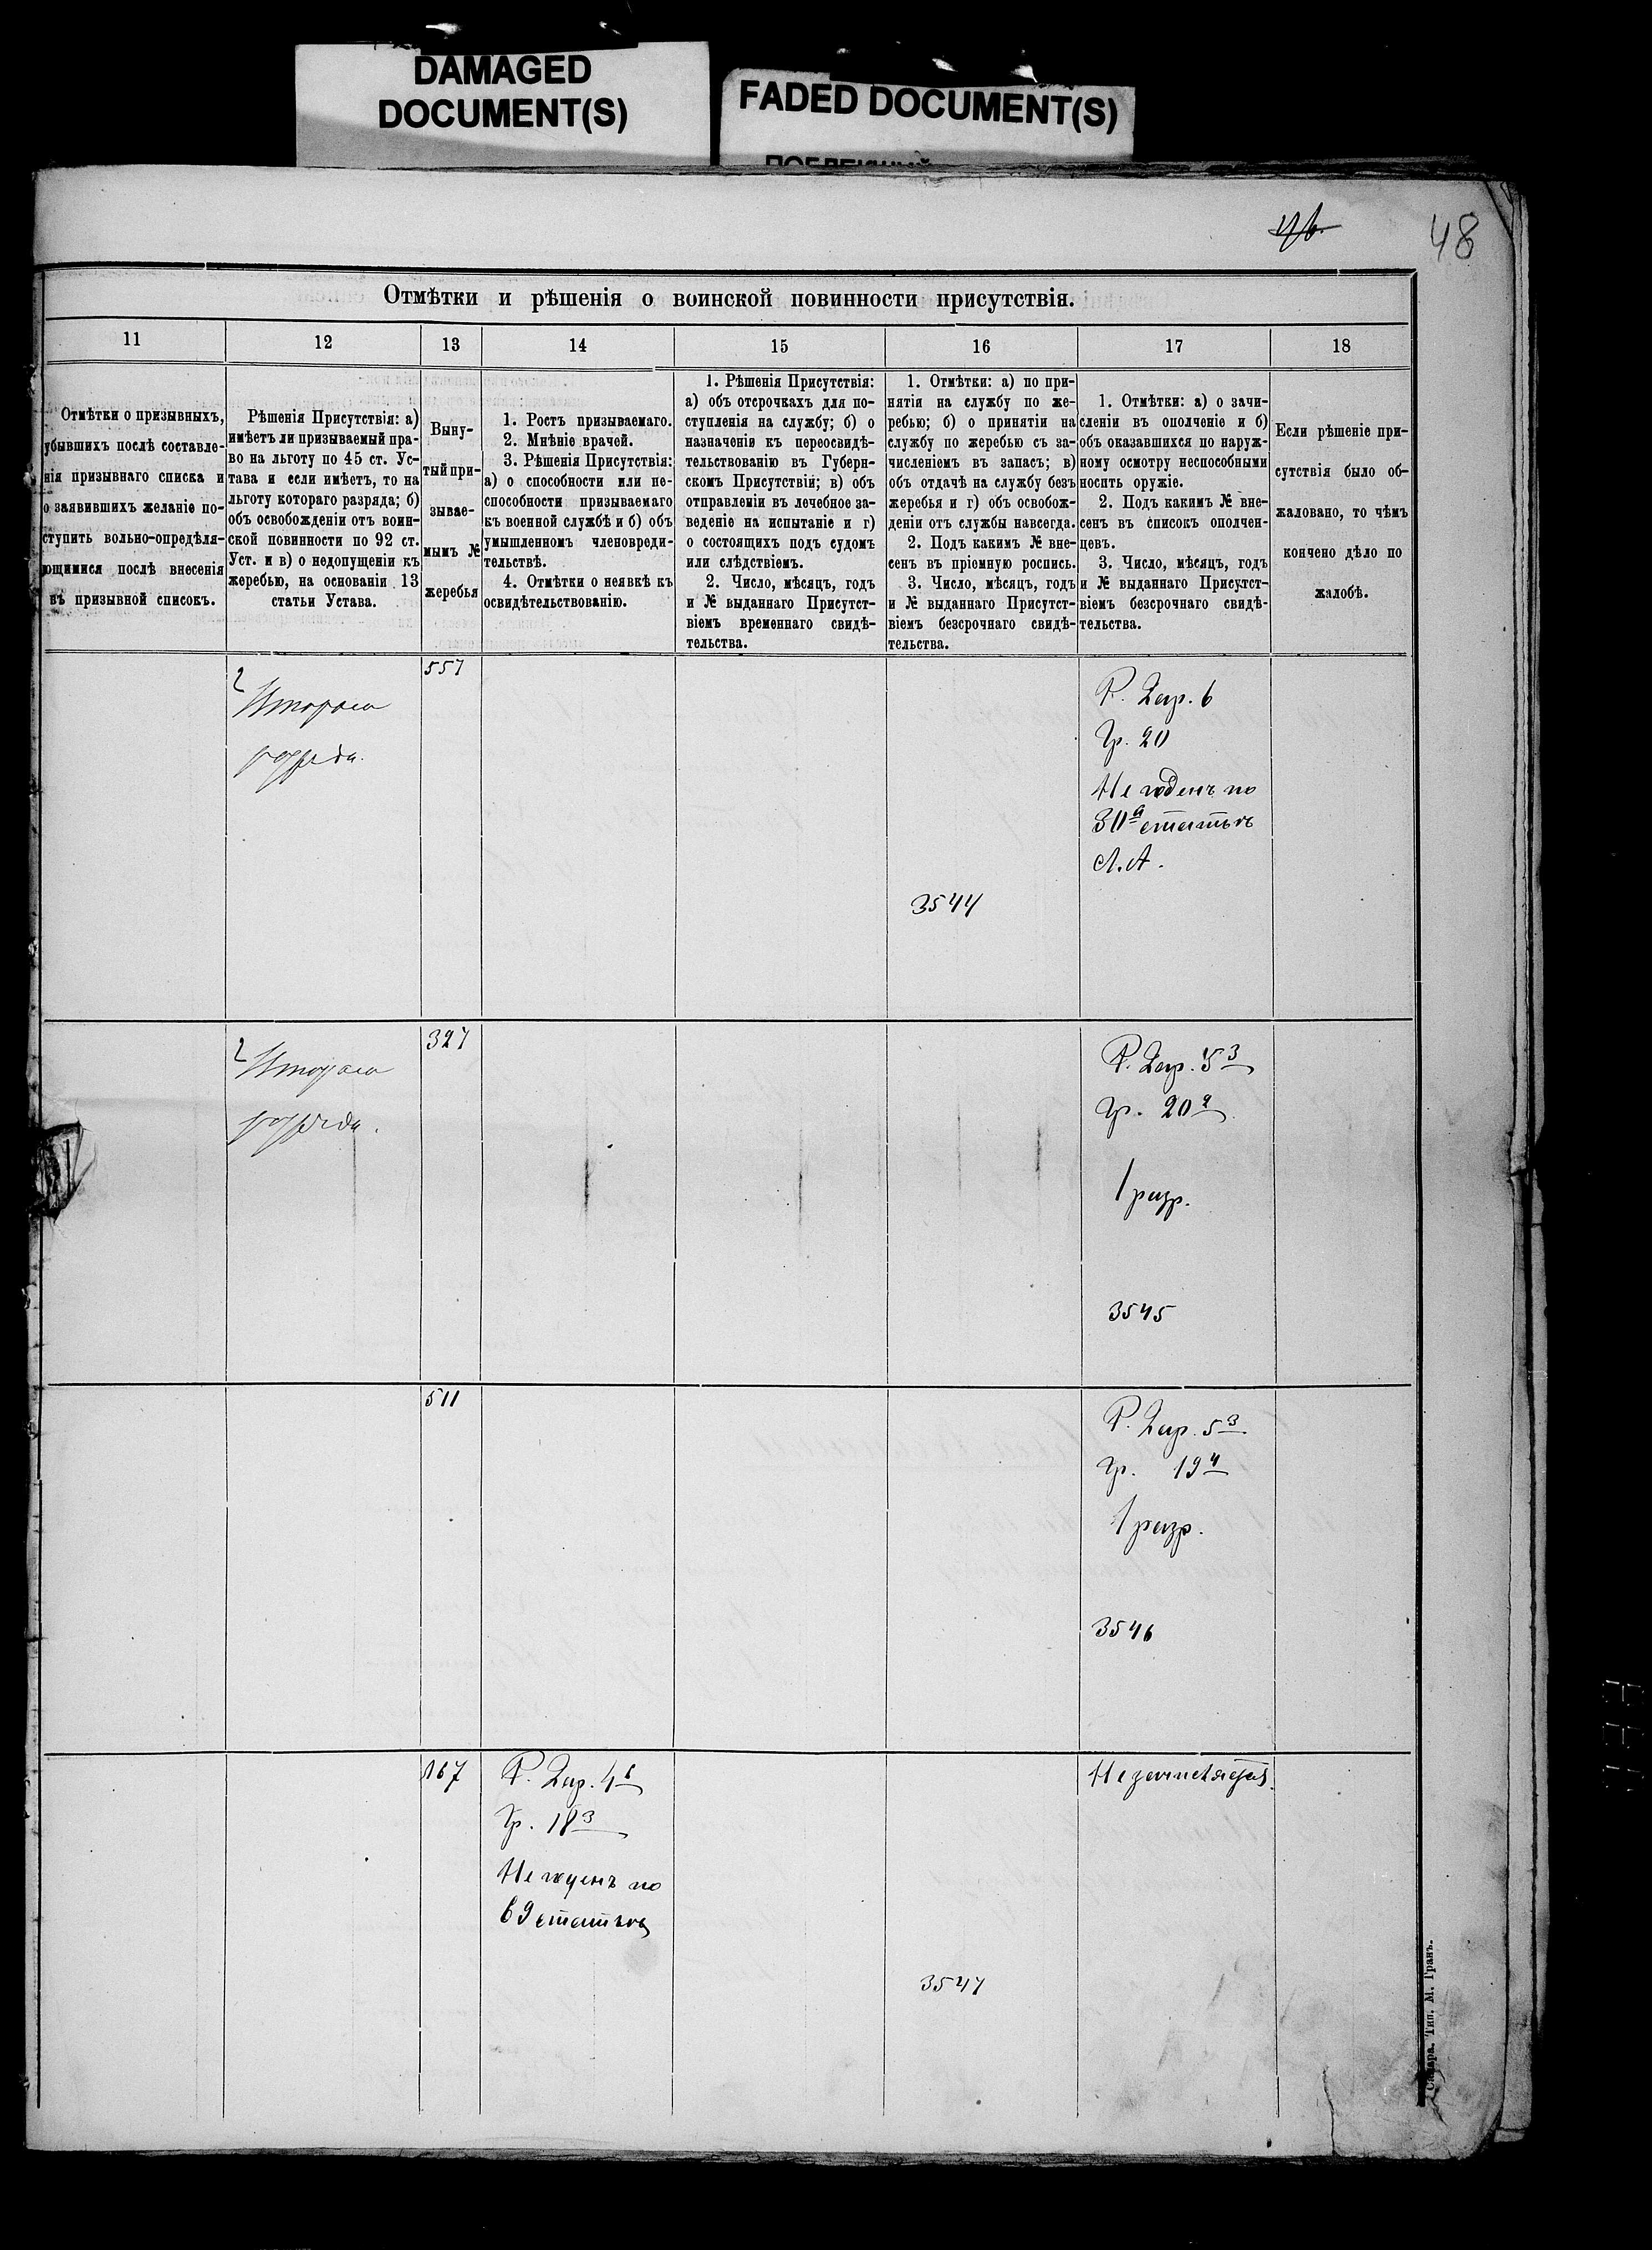 DAMAGED
DOCUMENT(S)
FADED DOCUMENT(S)
48
Отмѣтки и рѣшенія о воинской повинности присутствія.
11
12
13
14
15
16
17
18
Отмѣтки о призывныхъ,
убывшихъ послѣ составле-
нія призывнаго списка и
о заявившихъ желаніе по-
ступить вольно-опредѣля-
ющимися послѣ внесенія
въ призывной списокъ.
Рѣшенія Присутствія: а)
имѣетъ ли призываемый пра-
во на льготу по 45 ст. Ус-
тава и если имѣетъ, то на
льготу котораго разряда; б)
объ освобожденіи отъ воин-
ской повинности по 92 ст.
Уст. и в) о недопущеніи къ
жеребью, на основаніи 13
статьи Устава.
Выну-
тый при-
зывае-
мымъ №
жеребья
1. Ростъ призываемаго.
2. Мнѣніе врачей.
3. Рѣшенія Присутствія:
а) о способности или не-
способности призываемаго
къ военной службѣ и б) объ
умышленномъ членовреди-
тельствѣ.
4. Отмѣтки о неявкѣ къ
освидѣтельствованію.
1. Рѣшенія Присутствія:
а) объ отсрочкахъ для по-
ступленія на службу; б) о
назначеніи къ переосвидѣ-
тельствованію въ Губерн-
скомъ Присутствіи; в) объ
отправленіи въ лечебное за-
веденіе на испытаніе и г)
о состоящихъ подъ судомъ
или слѣдствіемъ.
2. Число, мѣсяцъ, годъ
и № выданнаго Присутст-
віемъ временнаго свидѣ-
тельства.
1. Отмѣтки: а) по при-
нятія на службу по же-
ребью; б) о принятіи на
службу по жеребью съ за-
численіемъ въ запасъ; в)
объ отдачѣ на службу безъ
жеребья и г) объ освобож-
деніи отъ службы навсегда.
2. Подъ какимъ № вне-
сенъ въ пріемную роспись.
3. Число, мѣсяцъ, годъ
и № выданнаго Присутст-
віемъ безсрочнаго свидѣ-
тельства.
1. Отмѣтки: а) о зачи-
сленіи въ ополченіе и б)
объ оказавшихся по наруж-
ному осмотру неспособными
носить оружіе.
2. Подъ какимъ № вне-
сенъ въ списокъ ополчен-
цевъ.
3. Число, мѣсяцъ, годъ
и № выданнаго Присутст-
віемъ безсрочнаго свидѣ-
тельства.
Если рѣшеніе при-
сутствія было об-
жаловано, то чѣмъ
кончено дѣло по
жалобѣ.
2
Втораго
разряда.
557
3544
Р. 2 ар. 6
Гр. 20
Не годенъ по
30й статьѣ
Л. А.
2
Втораго
разряда.
327
Р. 2 ар. 5 3
Гр. 20 2
1 разр.
3545
511
Р. 2 ар. 5 3
Гр. 19 4
1 разр.
3546
167
Р. 2 ар. 4 6
Гр. 18 3
Не годенъ по
69 статьѣ
3547
Не зачисляется.
Самара. Тип. М. Гранъ.